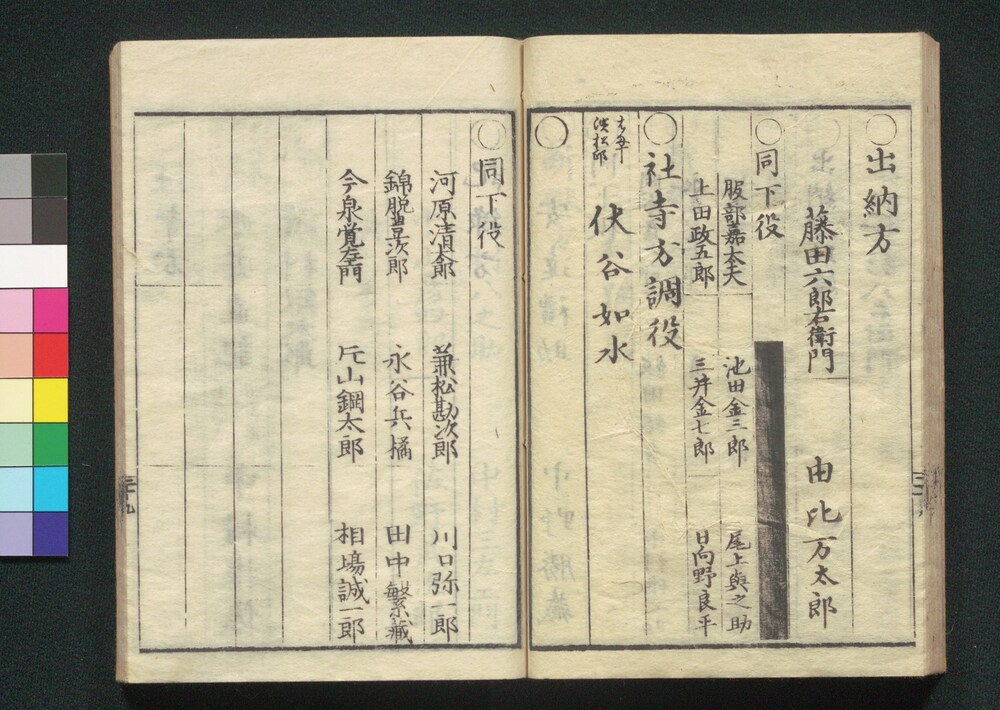 〇出納方
藤田六郎右衛門 由比万太郎
〇同下役
服部嘉太夫 池田金三郎 尾上與之助
上田政五郎 三井金七郎 日向野良平
〇社寺方調役
伏谷如水
〇
〇同下役
河原清太郎 兼松勘次郎 川口弥一郎
錦脱豊次郎 永谷兵橘 田中繁蔵
今泉覚左衛門 片山鋼太郎 相場誠一郎